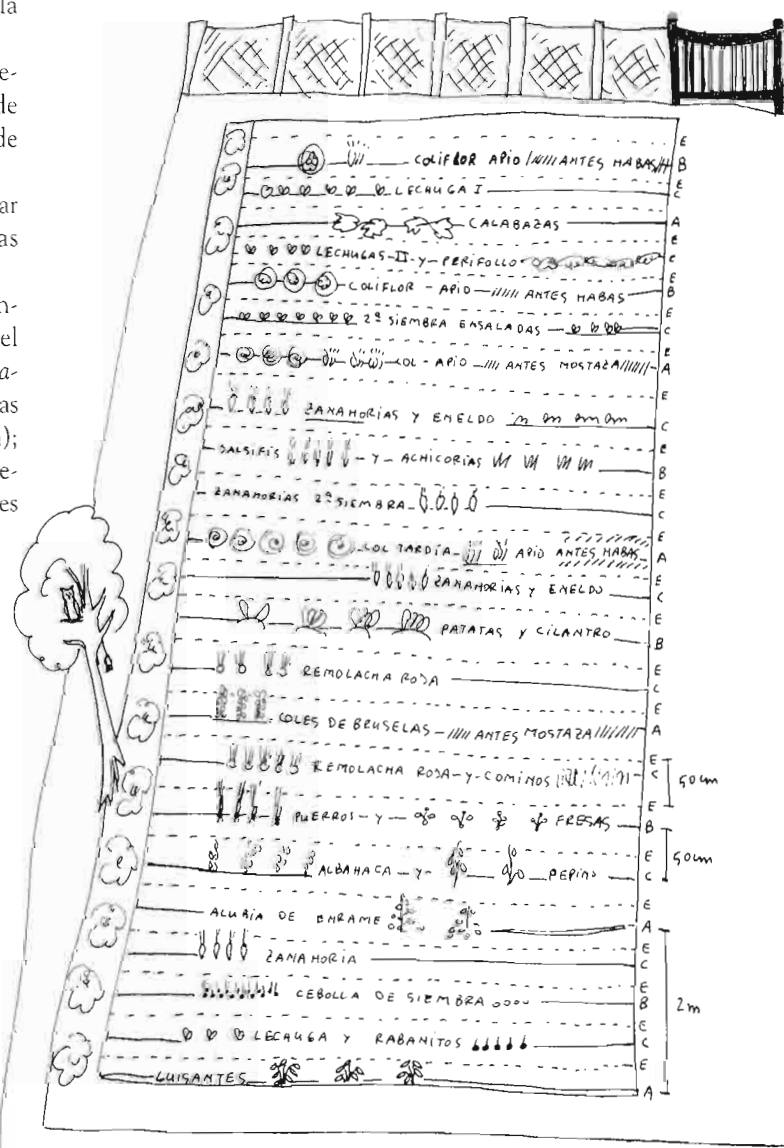 la
e-
de
de
ar
as
n-
el
a-
as
);
e-
es
E
COLIFLOR APIO ANTES HABAS B
E
LECHUGA I C
CALABAZAS A
E
LECHUGAS-II-Y-PERIFOLLO C
E
COLIFLOR - APIO ANTES HABAS B
E
2ª SIEMBRA ENSALADAS C
E
COL - APIO ANTES MOSTAZA A
E
ZANAHORIAS Y ENELDO C
E
SALSIFIS - Y - ACHICORIAS B
E
ZANAHORIAS 2ª SIEMBRA C
E
COL TARDÍA APIO ANTES HABAS A
E
ZANAHORIAS Y ENELDO C
E
PATATAS Y CILANTRO B
E
REMOLACHA ROJA C
E
COLES DE BRUSELAS ANTES MOSTAZA A
E
REMOLACHA ROJA-Y-COMINOS C
50cm
E
PUERROS-Y- FRESAS B
E
50cm
ALBAHACA -Y- PEPINO C
E
ALUBIA DE ENRAME A
E
ZANAHORIA C
E
CEBOLLA DE SIEMBRA B
2m
E
LECHUGA Y RABANITOS C
E
GUISANTES A